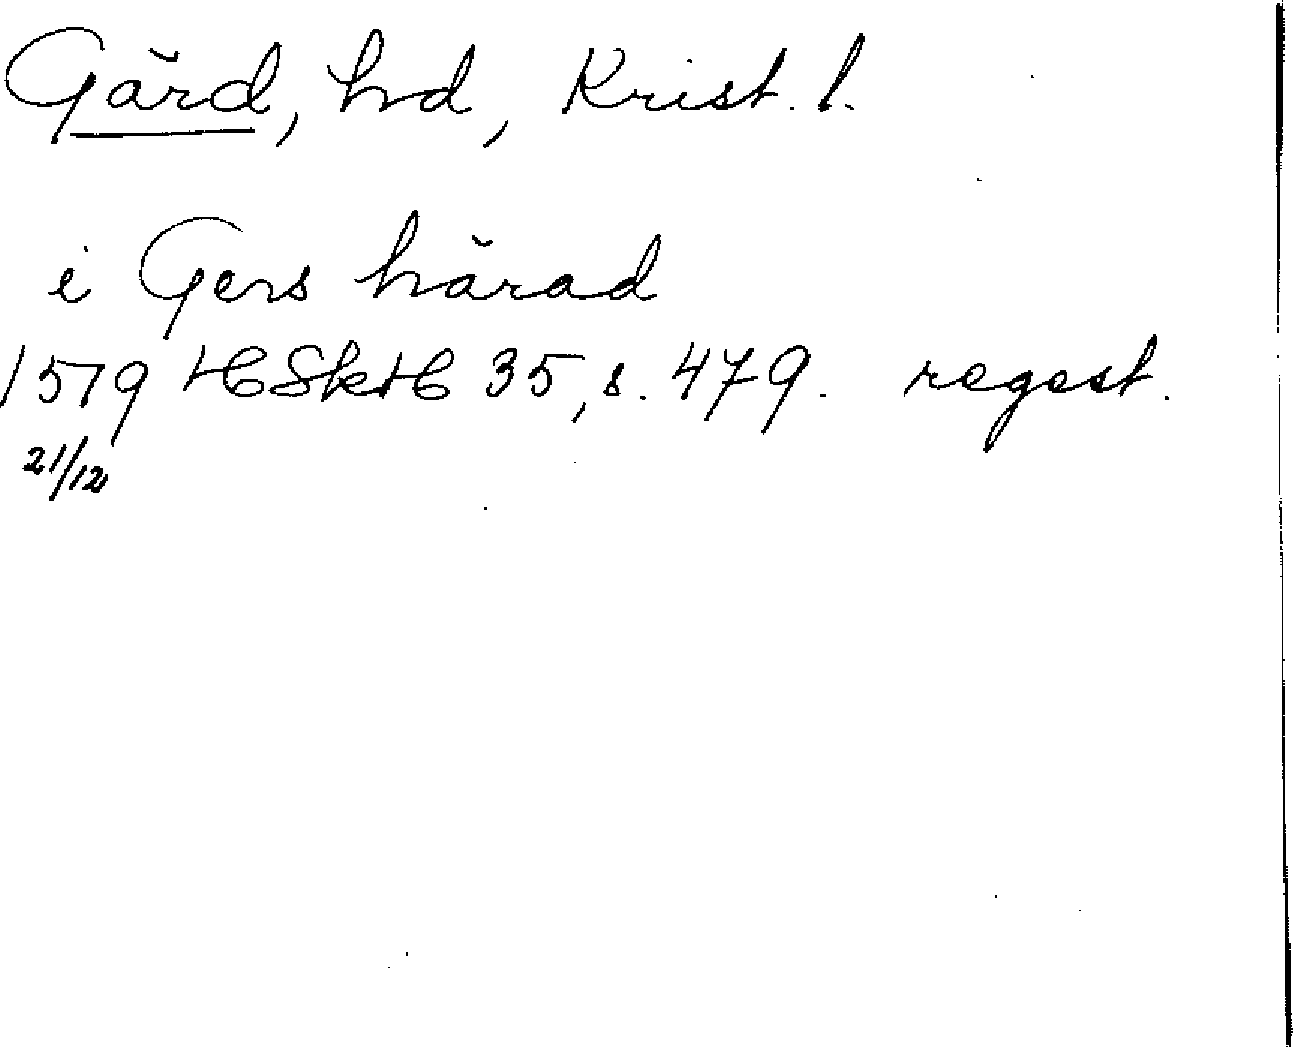 Gärd, hd, Krist. l.
i Gers härad
1579 HSkH 35, s. 479. regest.
21/12